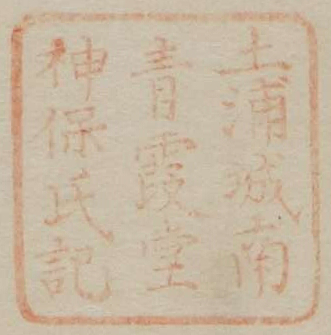 土浦城南
青霞堂
神保氏記